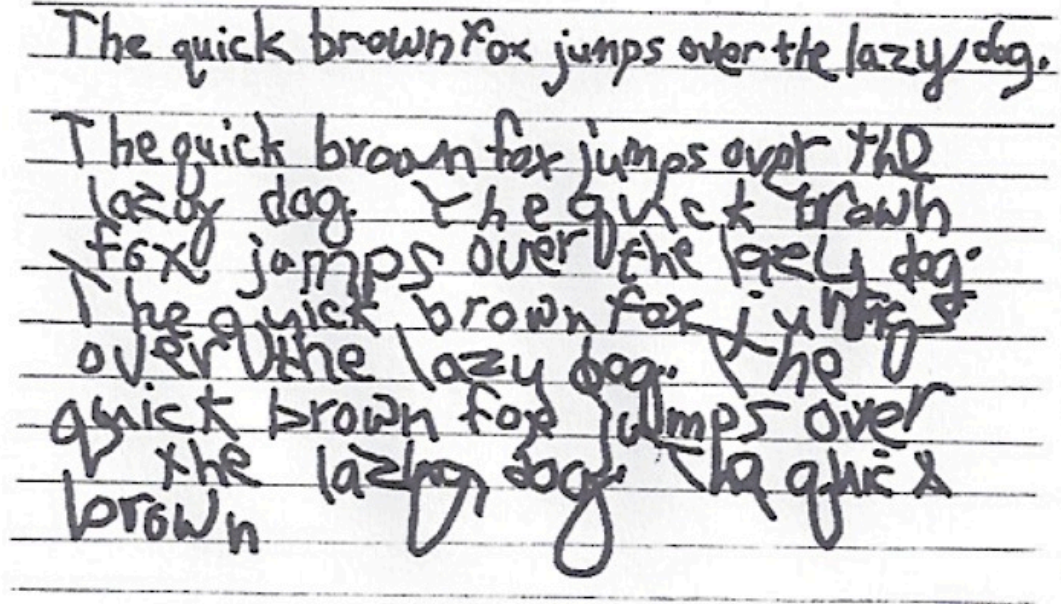 The quick brown fox jumps over the lazy dog.
The quick brown fox jumps over the
lazy dog. The quick brown
fox jumps over the lazy dog.
The quick brown fox jumps
over the lazy dog. The
quick brown fox jumps over
the lazy dog. The quick
brown